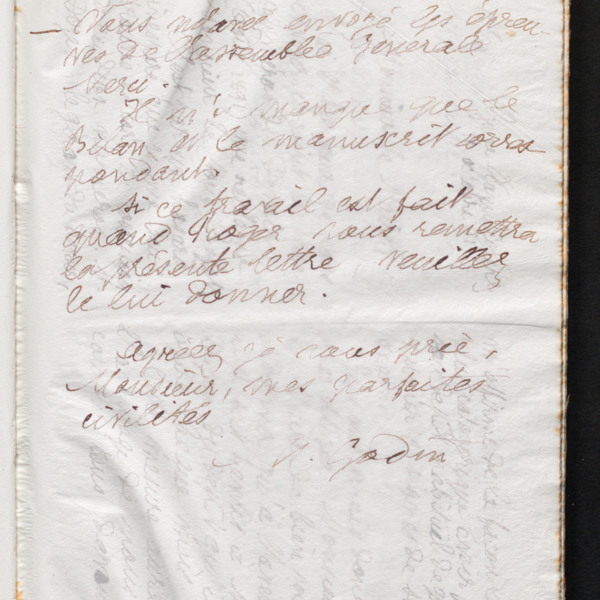 — Vous m'avez envoyé les épreu-
ves de l'assemblée Générale
Merci.
Il n'y manque que le
Bilan et le manuscrit corres
pondant.
Si ce travail est fait
quand Roger vous remettra
la présente lettre, veuillez
le lui donner.
Agréez, je vous prie,
Monsieur, mes parfaites
civilités
Godin